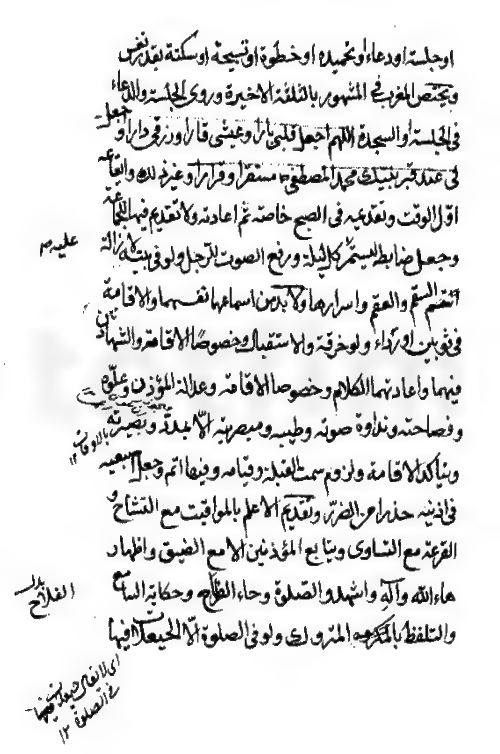 او جلسة او دعاء او تحميدة او خطوة او تسبيحة او سكتة بقدر نفس
ويختص المغرب في المشهور بالثلثة الاخيرة وروى الجلسة والدعاء
في الجلسة او السجدة اللهم اجعل قلبي بارا وعيشي قارا ورزقي دارا واجعل
لي عند قبر نبيك محمد المصطفى مستقرا وقرارا وغير ذلك وايقاعه
اول الوقت وتقديمه في الصبح خاصة ثم اعادته ولا تقديم فيها للجماعة
وجعل ضابطه ليستمر كل ليلة ورفع الصوت للرجل ولو في بيته لازالة
السقم والعقم واسرارها ولا بد من اسماعها نفسهما والاقامة
في ثوبين او رداء ولو خرقة والاستقبال وخصوصا الاقامة والشهادتان
فيهما واعادتهما الكلام وخصوصا الاقامة وعدالة المؤذن وعلوه
وفصاحته ونداوة صوته وطيبه ومبصريته الا بمسدد وبصيرته
بالاوقات ١٢
ويتاكد الاقامة ولزوم سمت القبلة وقيامه وفيها اتم وجعل اصبعيه
في اذنيه حذرا من الضرر وتقديم الاعلم بالمواقيت مع التشاح و
القرعة مع التساوى ويتابع المؤذنين الا مع الضيق واظهار
هاء الله وآله واشهد والصلوة وحاء الفلاح وحكاية السامع
والتلفظ بالمكروه المتروك ولو في الصلوة الا الحيعلات فيها
عليه م
بدل
الفلاح
اي لا تقال حيعلات فيها
في الصلوة ١٢